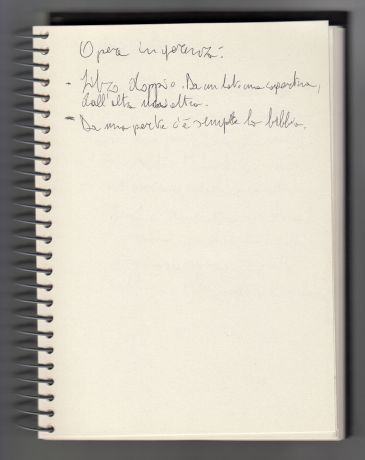 Opera in potenza:
- Libro doppio. Da un lato una copertina,
dall'altra un'altra.
- Da una parte c'è sempre la bibbia.